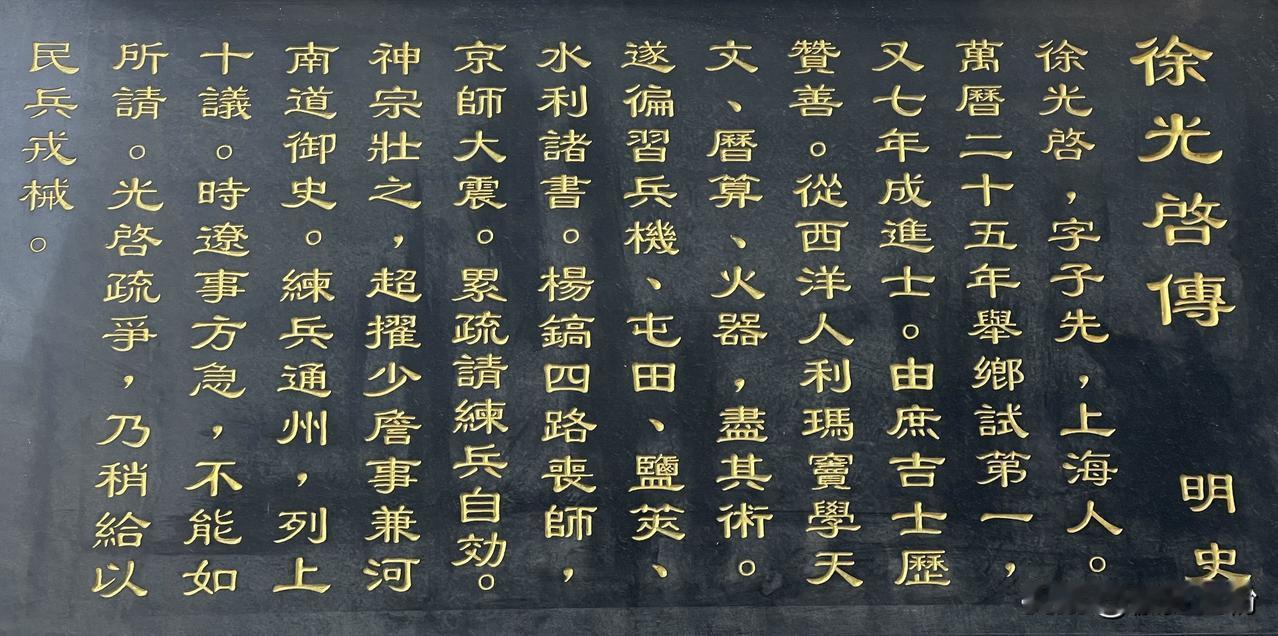 徐光啓傳
明史
徐光啓，字子先，上海人。
萬曆二十五年舉鄉試第一，
又七年成進士。由庶吉士歷
贊善。從西洋人利瑪竇學天
文、曆算、火器，盡其術。
遂徧習兵機、屯田、鹽筴、
水利諸書。楊鎬四路喪師，
京師大震。累疏請練兵自効。
神宗壯之，超擢少詹事兼河
南道御史。練兵通州，列上
十議。時遼事方急，不能如
所請。光啓疏爭，乃稍給以
民兵戎械。